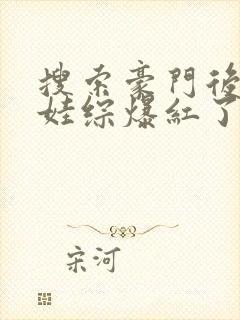 搜索豪門後
娃綜爆紅了
宋河